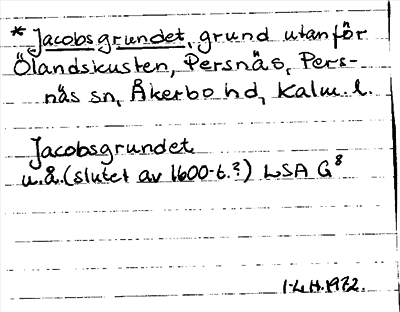 * Jacobsgrundet, grund utanför
Ölandskusten, Persnäs, Pers-
näs sn, Åkerbo hd, Kalm. l.
Jacobsgrundet
u.å. (slutet av 1600-t.?) LSA G8
1972.